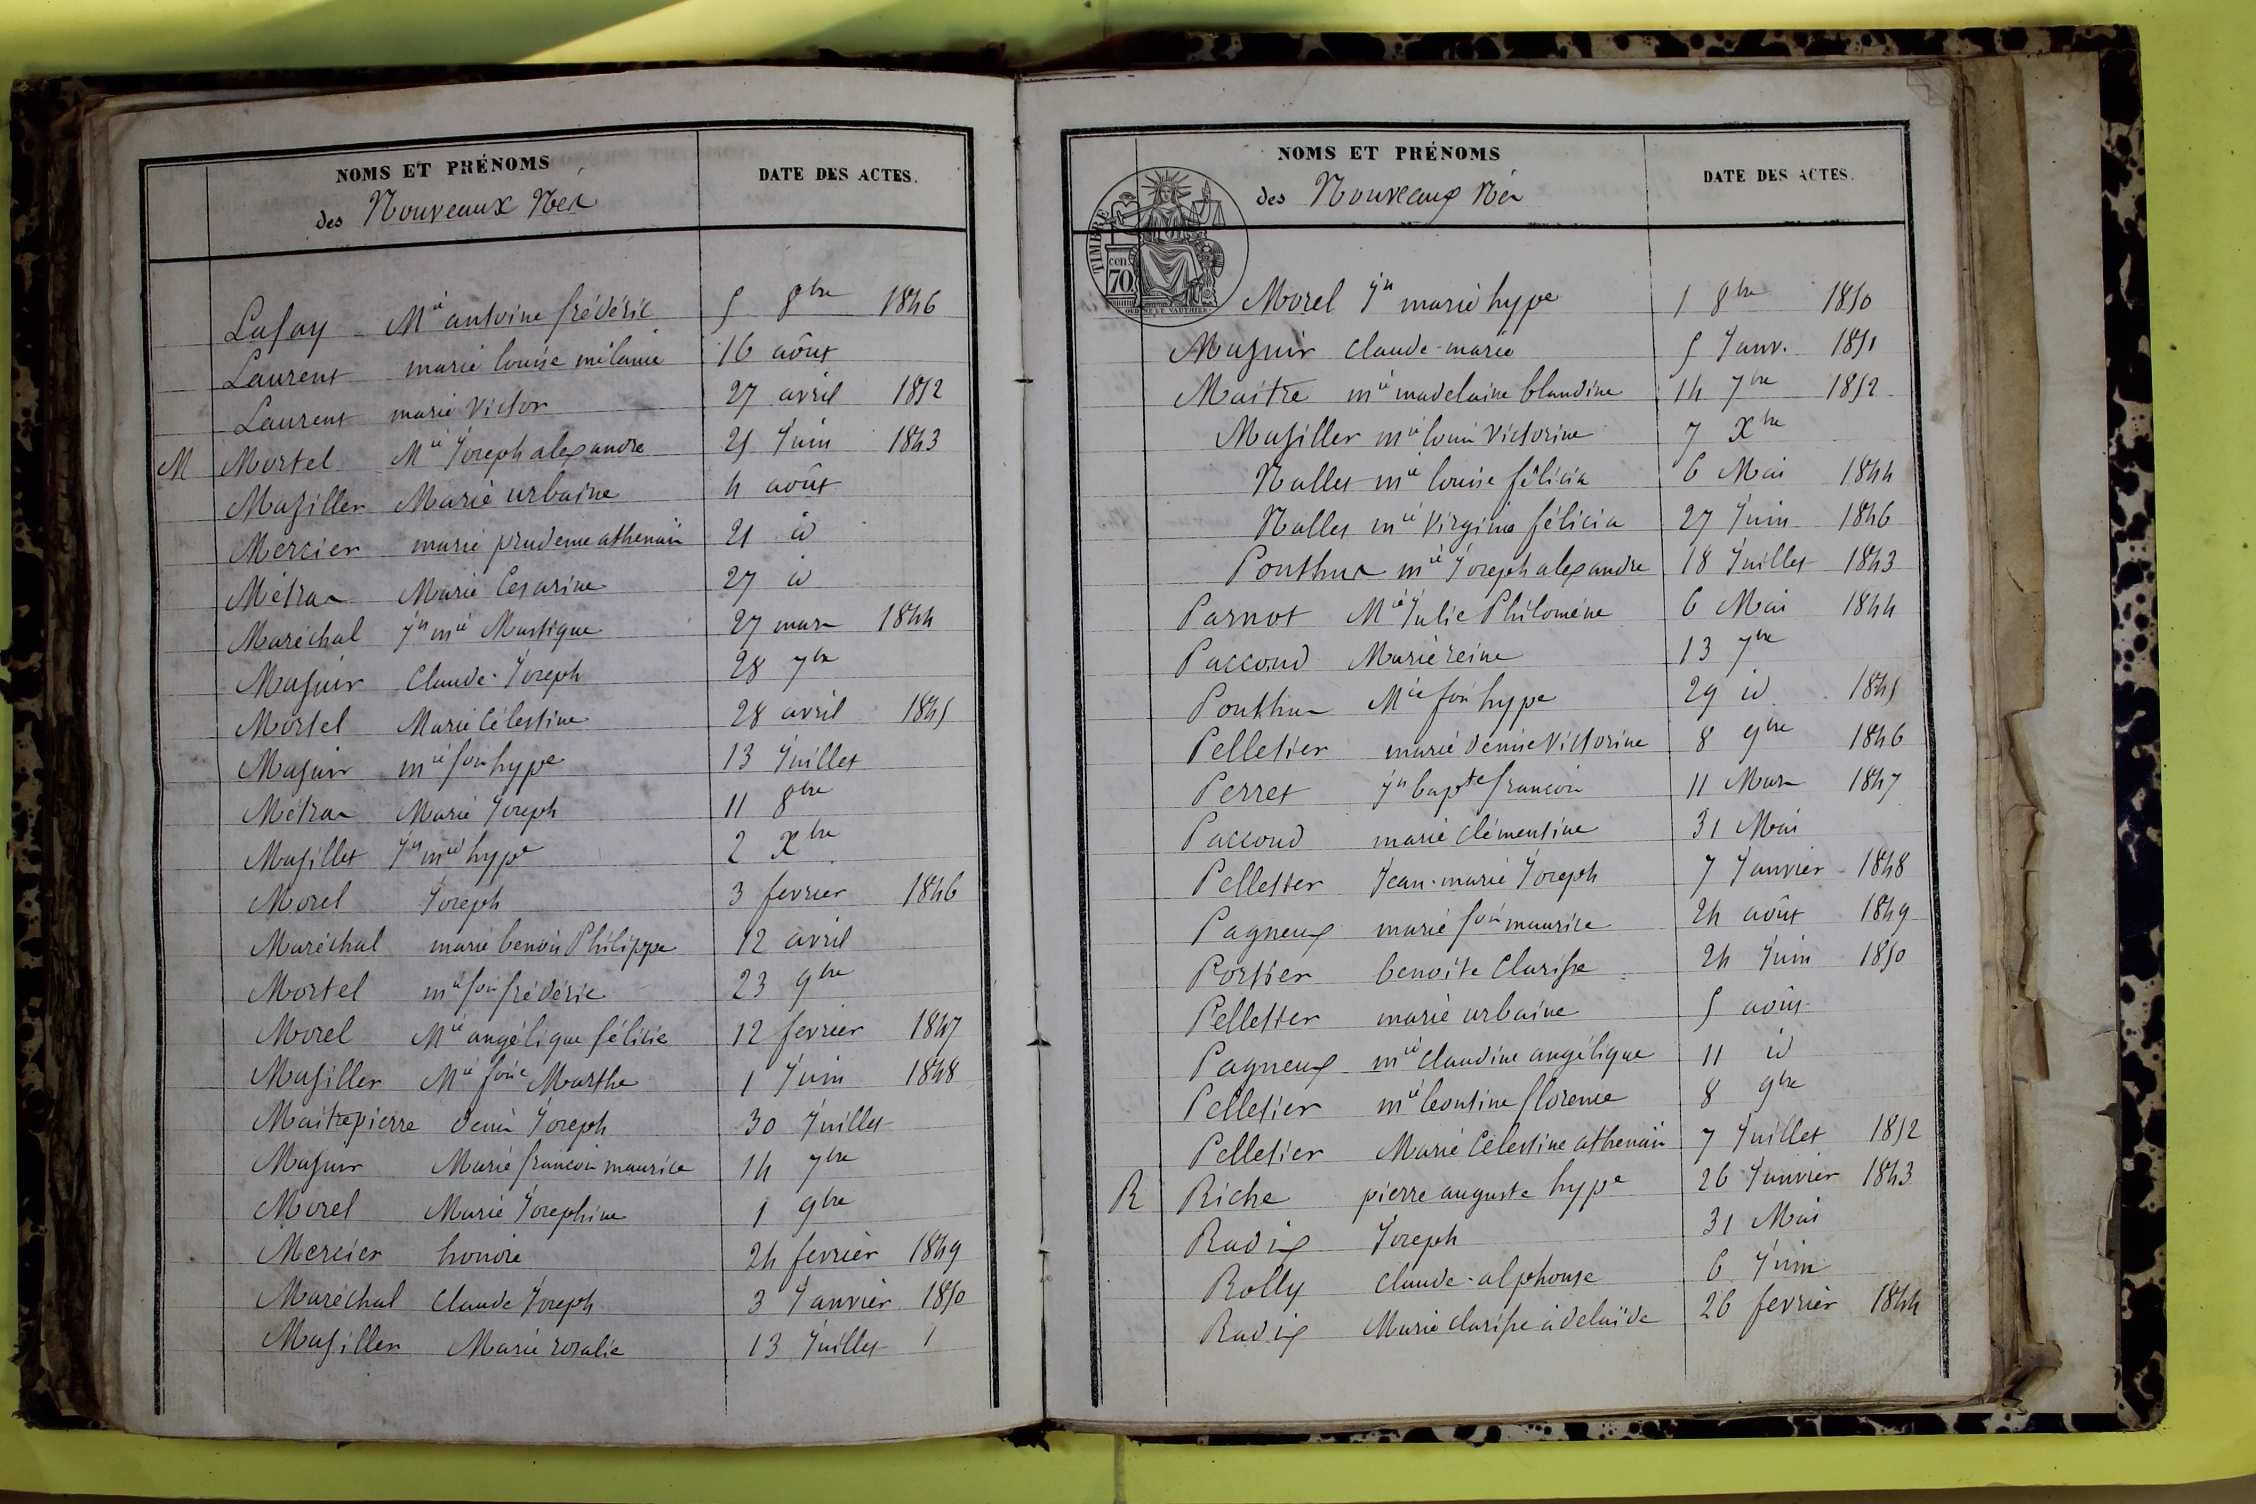 NOMS ET PRÉNOMS
DATE DES ACTES.
des Nouveaux Nés
Lafay Mie antoine frédéric 5 8bre 1846
Laurent marie louise mélanie 16 août
Laurent marie Victor 27 avril 1852
M Mortel Mie Joseph alexandre 25 Juin 1843
Masiller Marie urbaine 4 août
Mercier marie prudence athenaïs 21 id
Métras Marie Cesarine 27 id
Maréchal Jn mie Mustique 27 mars 1844
Masuir Claude-Joseph 28 7bre
Mortel Marie Célestine 28 avril 1845
Masuir mie fois hypte 13 Juillet
Métras Marie Joseph 11 8bre
Masillet Jn mie hypte 2 Xbre
Morel Joseph 3 fevrier 1846
Maréchal marie benoit Philippe 12 avril
Mortel mie fois frédéric 23 9bre
Morel Mie angélique félicie 12 fevrier 1847
Masiller Mie foise Marthe 1 Juin 1848
Maitrepierre denis Joseph 30 Juillet
Masuir Marie françois maurice 14 7bre
Morel Marie Josephine 1 9bre
Mercier honoré 24 fevrier 1849
Maréchal Claude Joseph 3 Janvier 1850
Masiller Marie rosalie 13 Juillet
NOMS ET PRÉNOMS
DATE DES ACTES.
des Nouveaux Nés
TIMBRE
cen.
70
OUDINÉ ET VAUTHIER
Morel Jn marie hype 1 8bre 1850
Masuir Claude-marie 5 Janv. 1851
Maitre mie madelaine blandine 14 7bre 1852
Masiller mie louis Victorine 7 Xbre
Nallet mie louise félicia 6 Mai 1844
Nallet mie Virginie félicia 27 Juin 1846
Ponthus mie Joseph alexandre 18 Juillet 1843
Parnot Mie Julie Philomène 6 Mai 1844
Paccoud Marie reine 13 7bre
Ponthus Mie fois hype 29 id 1845
Pelletier marie denise Victorine 8 9bre 1846
Perret Jn bapte françois 11 Mars 1847
Paccoud marie Clémentine 31 Mai
Pelletier Jean-marie Joseph 7 Janvier 1848
Pagneux marie fois maurice 24 août 1849
Portier benoite Clarisse 24 Juin 1850
Pelletier marie urbaine 5 août
Pagneux mie Claudine angélique 11 id
Pelletier mie Léontine florence 8 9bre
Pelletier Marie Célestine athenaïs 7 Juillet 1852
R Riche pierre auguste hypte 26 Janvier 1843
Radix Joseph 31 Mai
Rolly Claude-alphonse 6 Juin
Radix Marie clarisse adelaïde 26 fevrier 1844